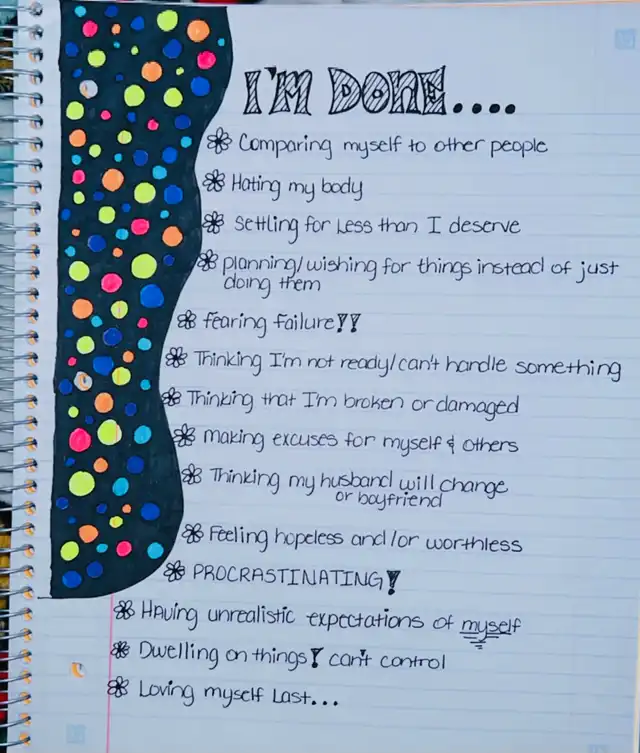 I'M DONE....
Comparing myself to other people
Hating my body
Settling for Less than I deserve
planning/wishing for things instead of just
doing them
fearing failure!!
Thinking I'm not ready/can't handle something
Thinking that I'm broken or damaged
making excuses for myself & others
Thinking my husband will change
or boyfriend
Feeling hopeless and/or worthless
PROCRASTINATING!
HAving unrealistic expectations of myself
Dwelling on things I can't control
Loving myself Last...